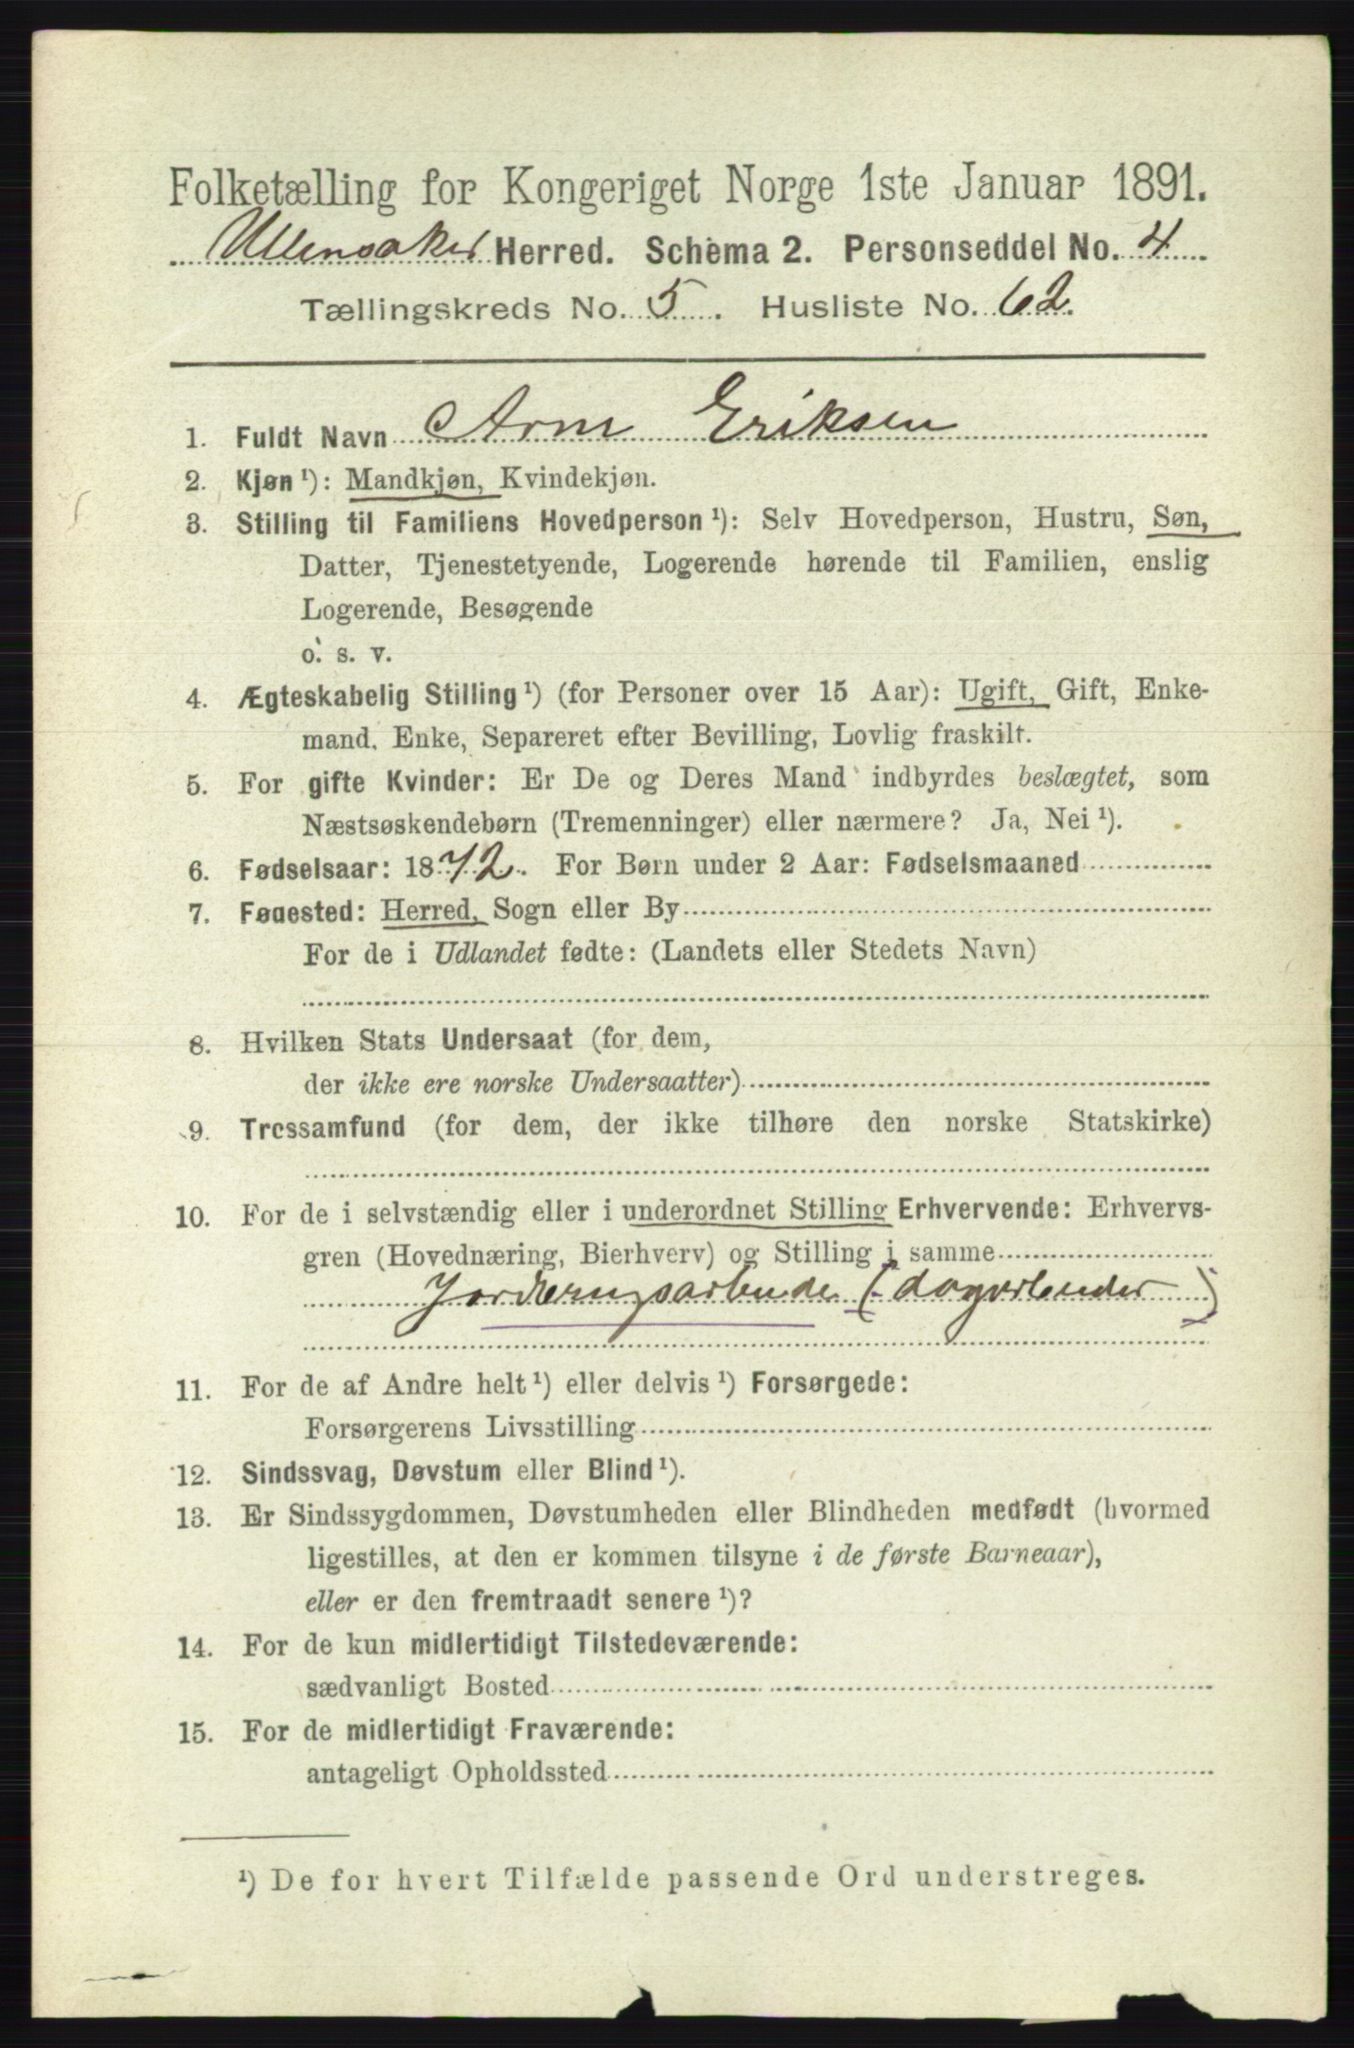 Folketælling for Kongeriget Norge 1ste Januar 1891.
Ullensaker Herred. Schema 2. Personseddel No. 4
Tællingskreds No. 5. Husliste No. 62.
1. Fuldt Navn Arne Eriksen
2. Kjøn ¹): Mandkjøn, Kvindekjøn.
3. Stilling til Familiens Hovedperson ¹): Selv Hovedperson, Hustru, Søn,
Datter, Tjenestetyende, Logerende hørende til Familien, enslig
Logerende, Besøgende
o. s. v.
4. Ægteskabelig Stilling ¹) (for Personer over 15 Aar): Ugift, Gift, Enke-
mand, Enke, Separeret efter Bevilling, Lovlig fraskilt.
5. For gifte Kvinder: Er De og Deres Mand indbyrdes beslægtet, som
Næstsøskendebørn (Tremenninger) eller nærmere? Ja, Nei ¹).
6. Fødselsaar: 1872. For Børn under 2 Aar: Fødselsmaaned
7. Fødested: Herred, Sogn eller By
For de i Udlandet fødte: (Landets eller Stedets Navn)
8. Hvilken Stats Undersaat (for dem,
der ikke ere norske Undersaatter)
9. Trossamfund (for dem, der ikke tilhøre den norske Statskirke)
10. For de i selvstændig eller i underordnet Stilling Erhvervende: Erhvervs-
gren (Hovednæring, Bierhverv) og Stilling i samme
Jordbrugsarbeider (dagarbeider)
11. For de af Andre helt ¹) eller delvis ¹) Forsørgede:
Forsørgerens Livsstilling
12. Sindssvag, Døvstum eller Blind ¹).
13. Er Sindssygdommen, Døvstumheden eller Blindheden medfødt (hvormed
ligestilles, at den er kommen tilsyne i de første Barneaar),
eller er den fremtraadt senere ¹)?
14. For de kun midlertidigt Tilstedeværende:
sædvanligt Bosted
15. For de midlertidigt Fraværende:
antageligt Opholdssted
¹) De for hvert Tilfælde passende Ord understreges.